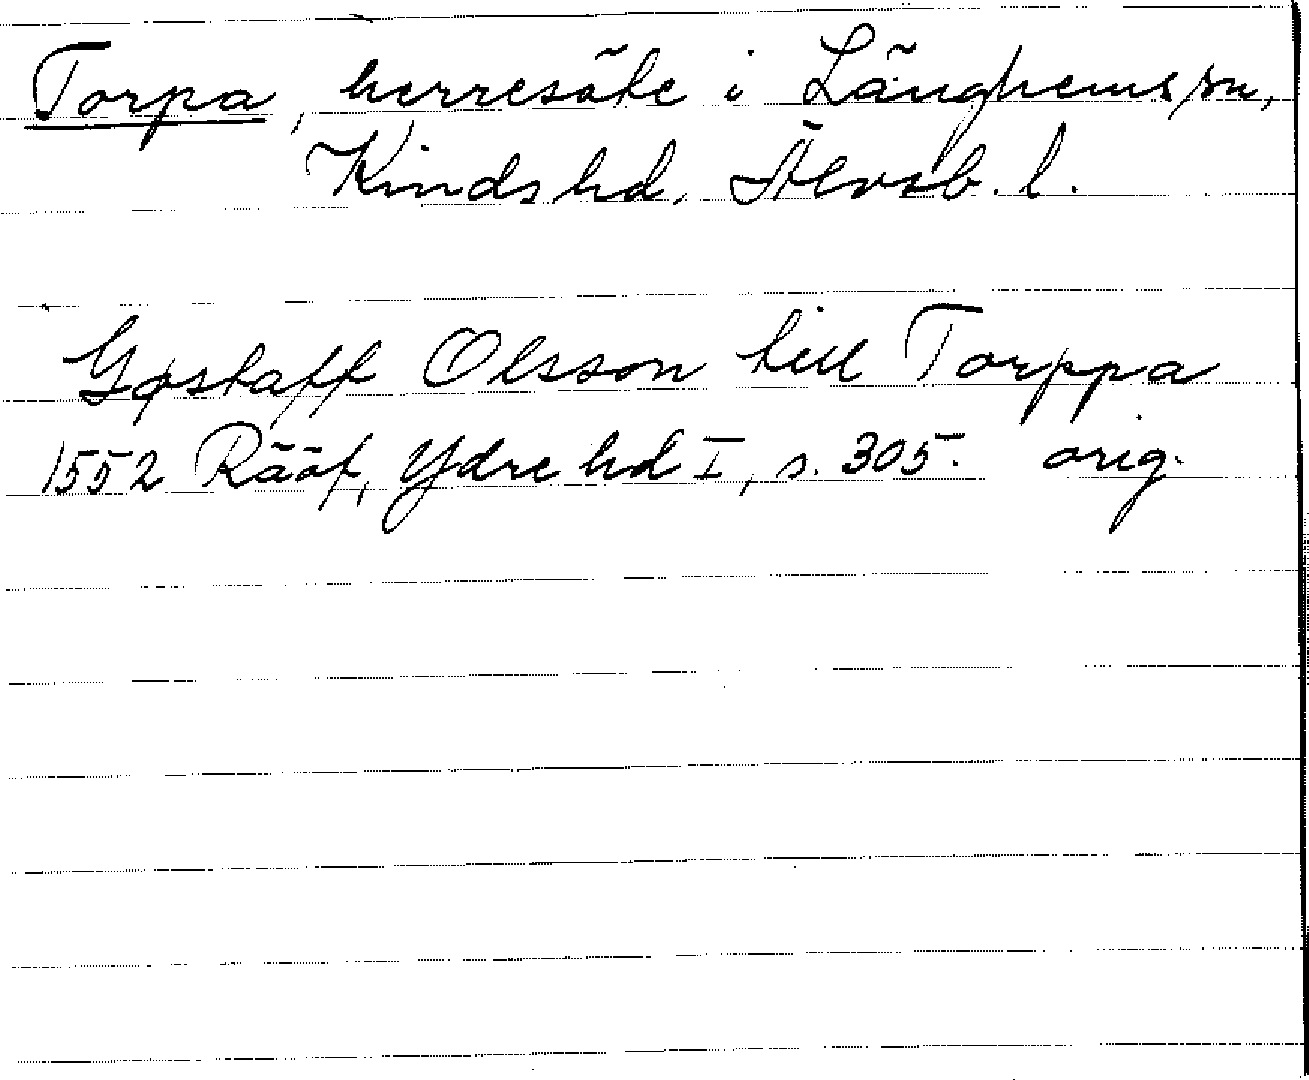 Torpa, herresäte i Länghems sn,
Kinds hd. Älvsb. l.
Gøstaff Olsson till Torppa
1552 Rääf, Ydre hd I, s. 305. orig.